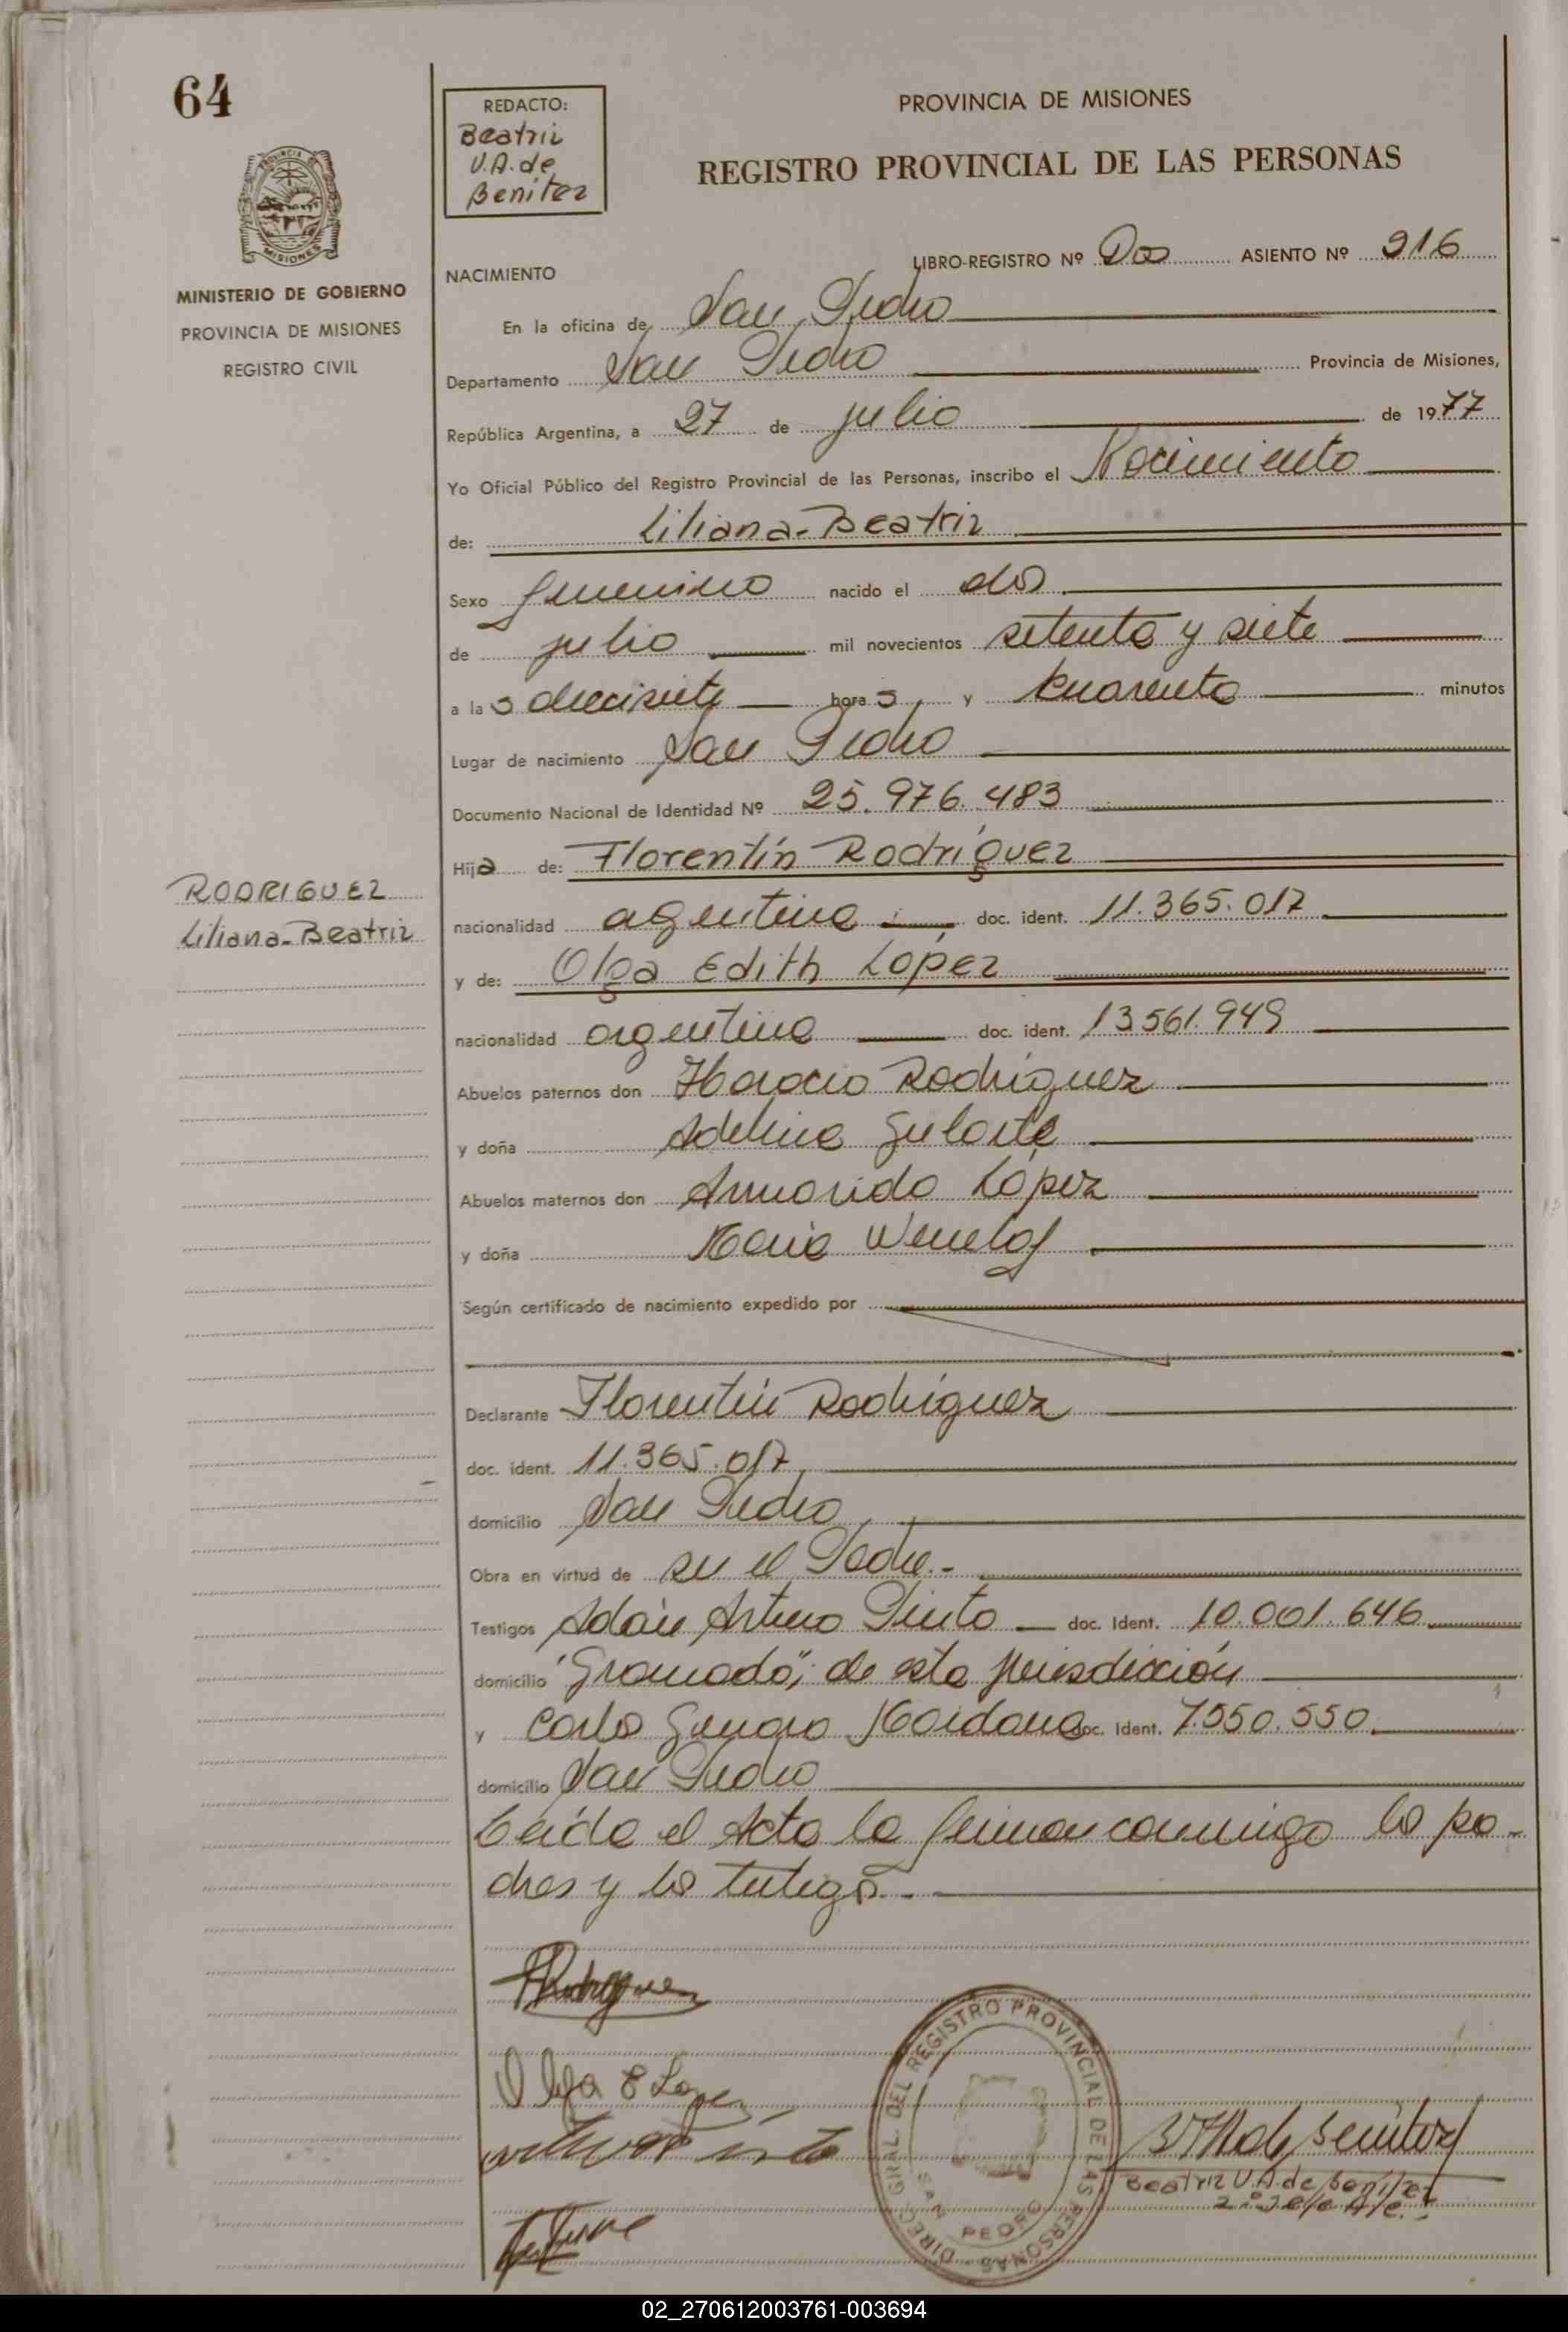 64
REDACTO:
Beatriz
V.A. de
Benitez
PROVINCIA DE MISIONES
REGISTRO PROVINCIAL DE LAS PERSONAS
PROVINCIA DE
MISIONES
MINISTERIO DE GOBIERNO
PROVINCIA DE MISIONES
REGISTRO CIVIL
LIBRO-REGISTRO Nº Dos ASIENTO Nº 916
NACIMIENTO
En la oficina de San Pedro
Departamento San Pedro Provincia de Misiones,
República Argentina, a 27 de julio de 1977
Yo Oficial Público del Registro Provincial de las Personas, inscribo el Nacimiento
de: Liliana-Beatriz
Sexo femenino nacido el dos
de julio mil novecientos setenta y siete
a las diecisiete horas y cuarenta minutos
Lugar de nacimiento San Pedro
Documento Nacional de Identidad Nº 25.976.483
Hija de: Florentín Rodríguez
RODRIGUEZ
Liliana-Beatriz
nacionalidad argentina doc. ident. 11.365.017
y de: Olga Edith López
nacionalidad argentina doc. ident. 13561.949
Abuelos paternos don Horacio Rodríguez
y doña Adelina Gularte
Abuelos maternos don Armando López
y doña Maria
Según certificado de nacimiento expedido por
Declarante Florentín Rodríguez
doc. ident. 11.365.017
domicilio San Pedro
Obra en virtud de ser el Padre.-
Testigos Adán Arturo Pinto doc. Ident. 10.001.646
domicilio "Gramado", de esta jurisdicción
y Carlos Genaro Maidana doc. Ident. 7.550.550
domicilio San Pedro
Leída el Acta la firman conmigo los pa-
dres y los testigos.-
FRodriguez
Olga E Lopez
DIREC. GRAL. DEL REGISTRO PROVINCIAL DE LAS PERSONAS
SAN PEDRO
Beatriz V.A. de Benitez
02_270612003761-003694